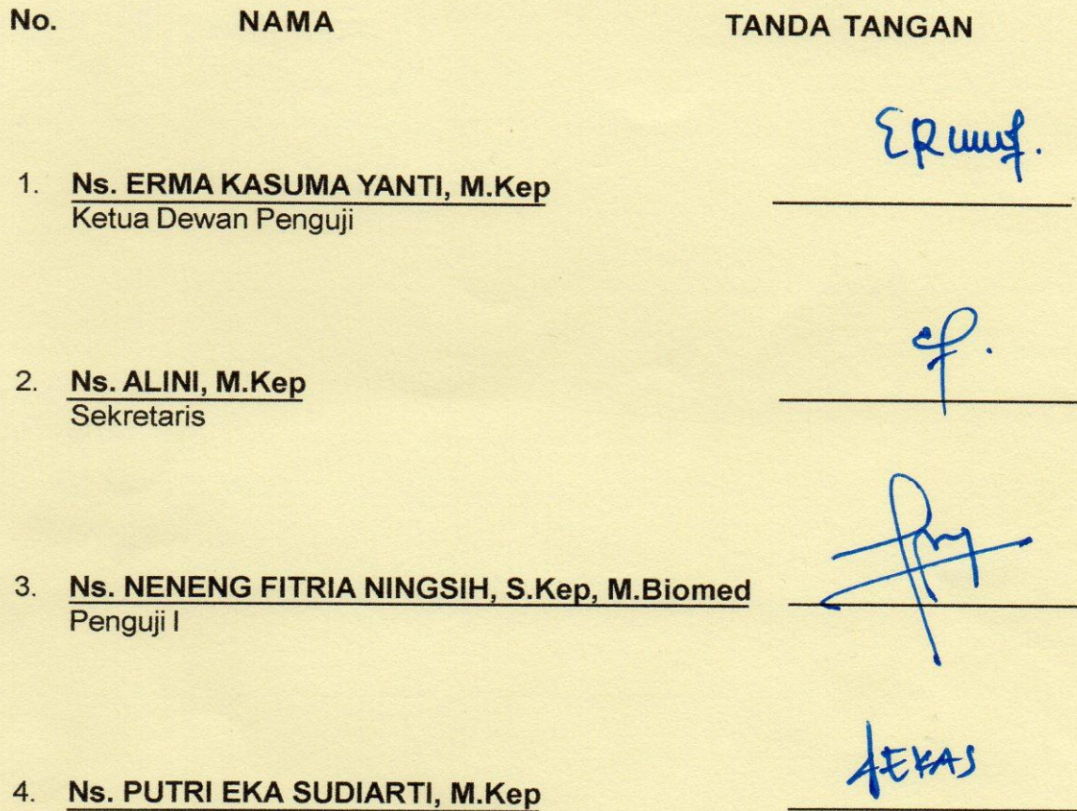 No. NAMA TANDA TANGAN
1. Ns. ERMA KASUMA YANTI, M.Kep
Ketua Dewan Penguji
2. Ns. ALINI, M.Kep
Sekretaris
3. Ns. NENENG FITRIA NINGSIH, S.Kep, M.Biomed
Penguji I
4. Ns. PUTRI EKA SUDIARTI, M.Kep